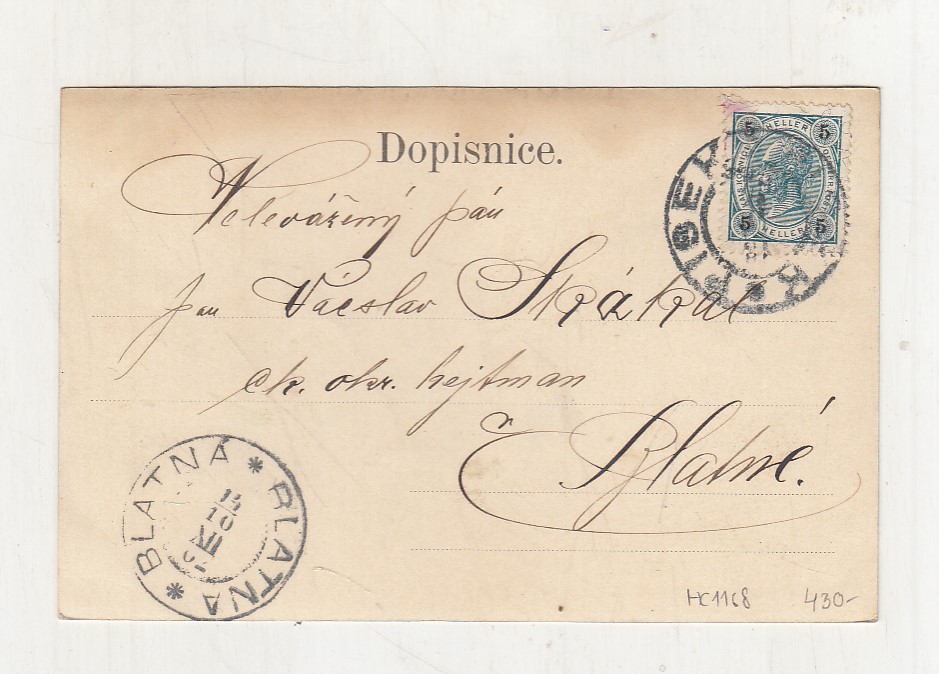 Dopisnice.
5 HELLER 5
5 HELLER 5
PISEK
Velevážený pán
pan Václav Skákal
ck. okr. hejtman
v Blatné.
* BLATNÁ * BLATNA
HC1168 430-